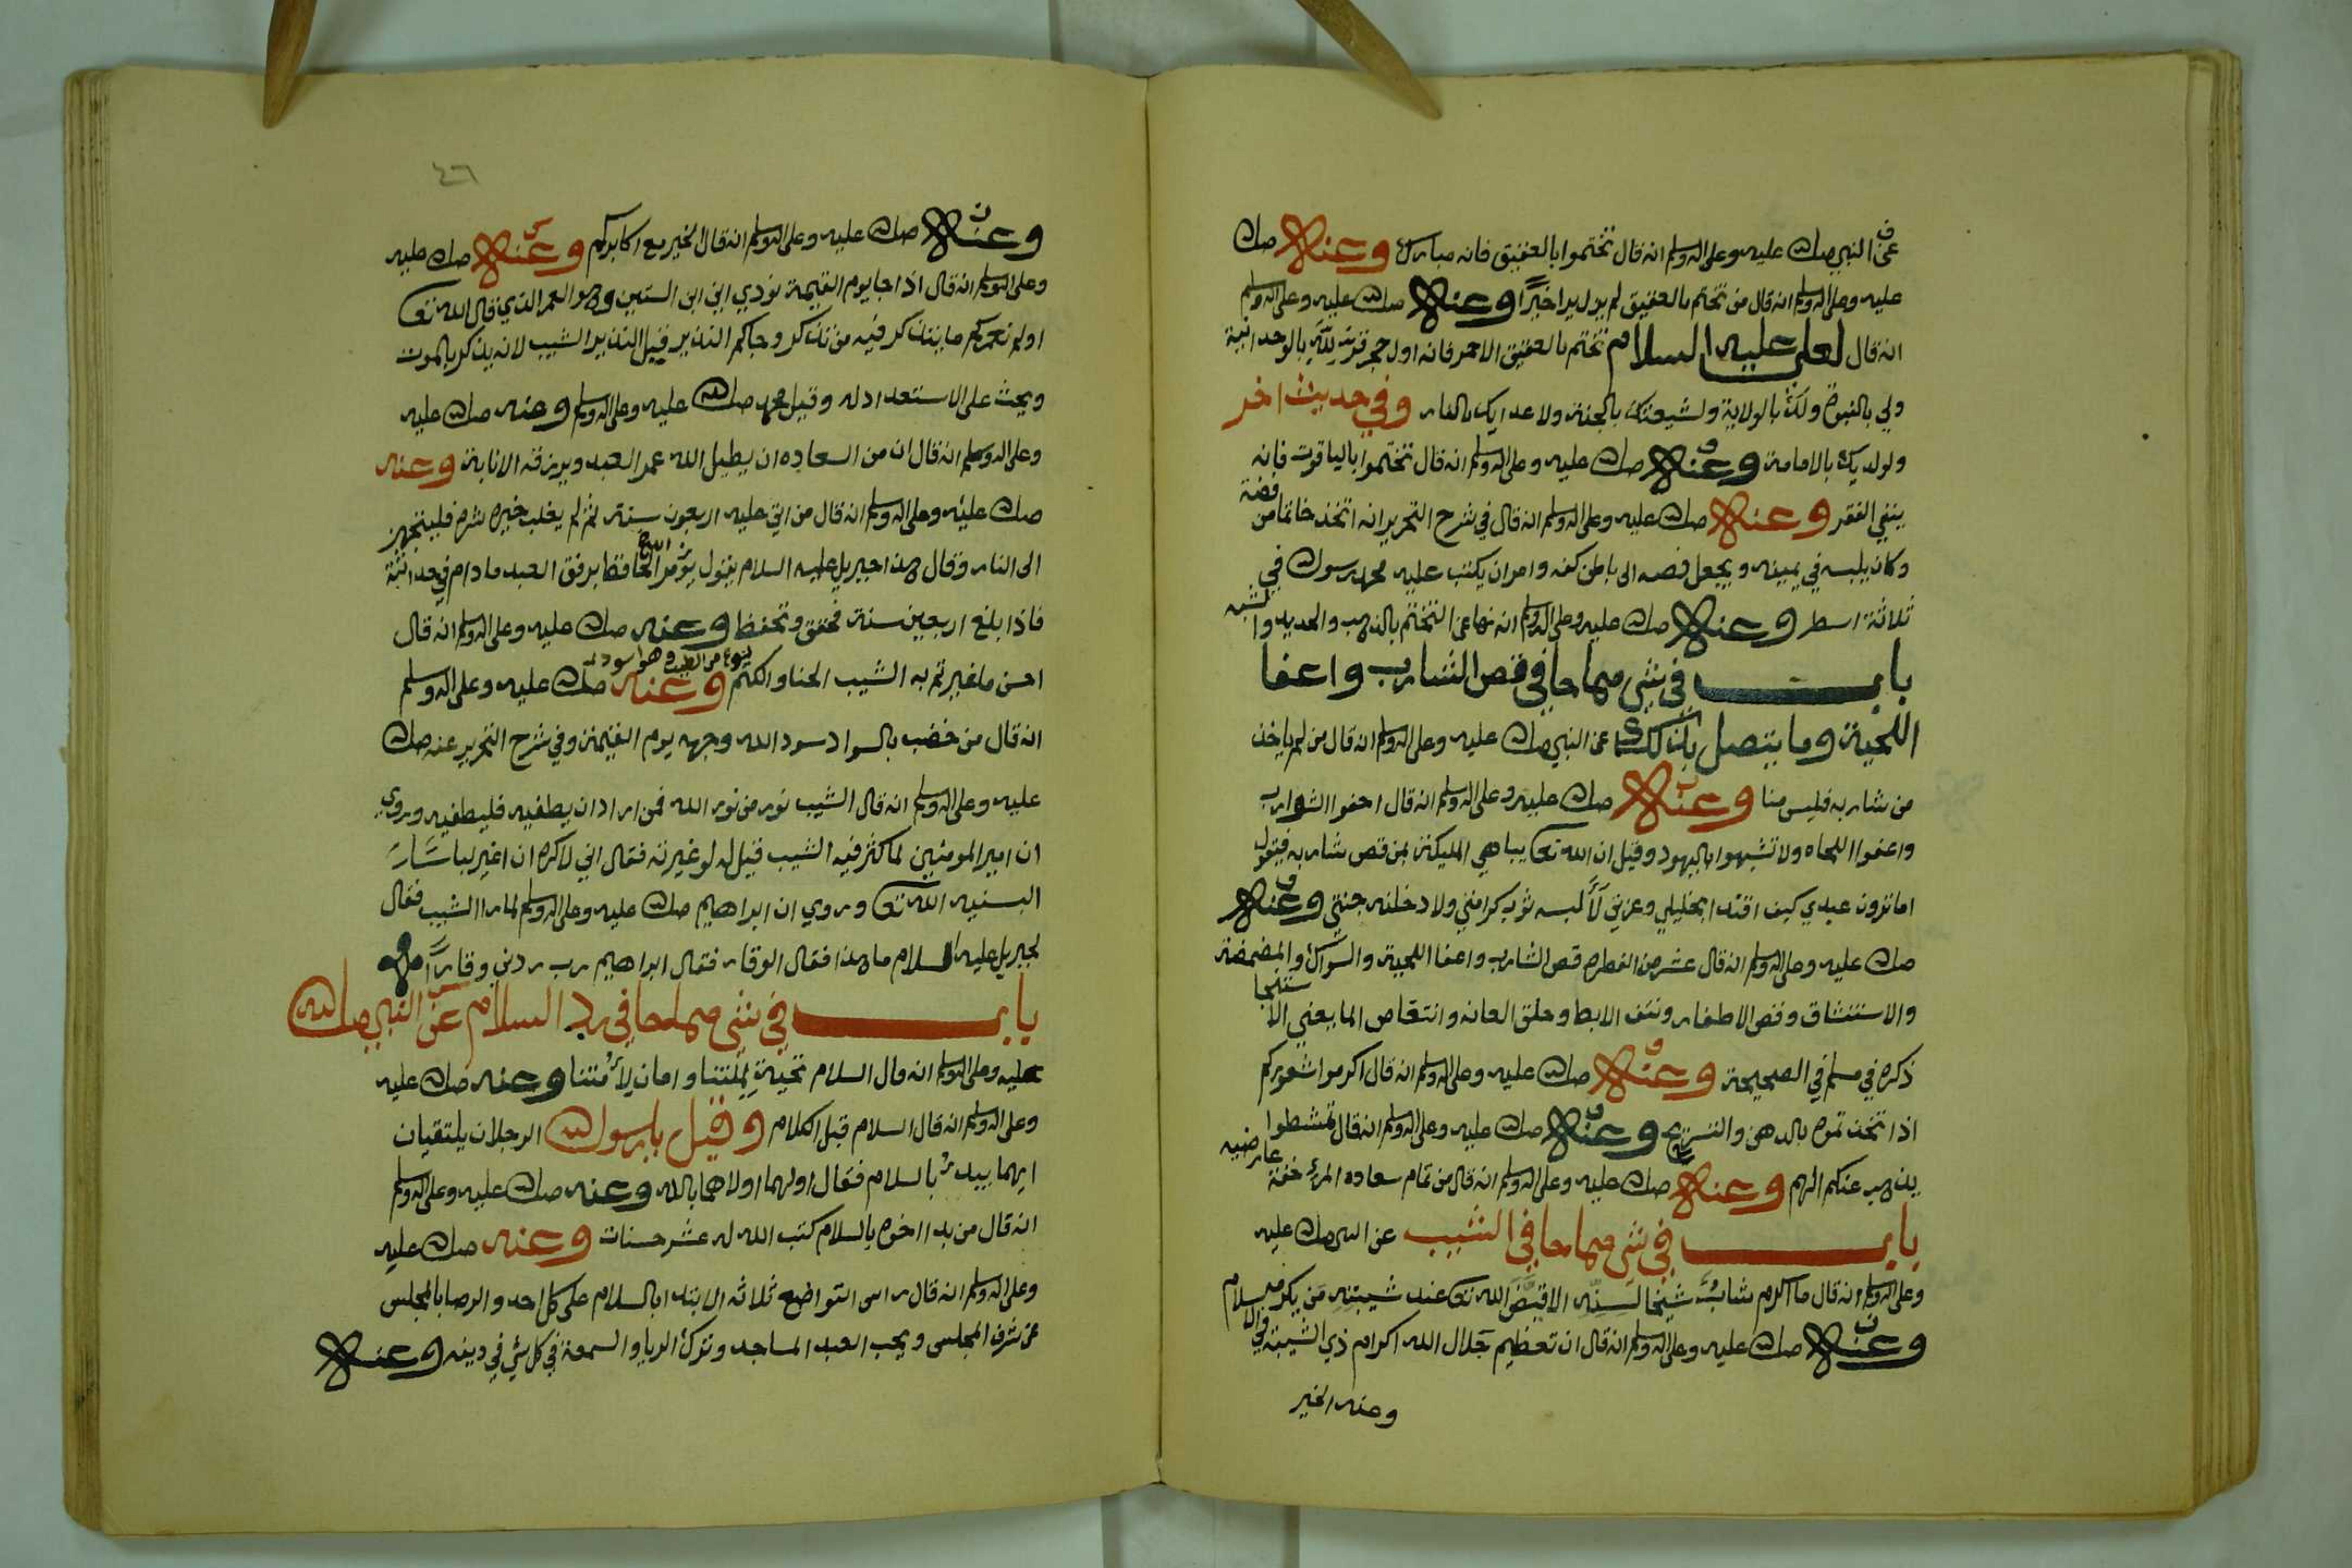 عن النبي صلى الله عليه وعلى اله وسلم انه قال تختموا بالعقيق فانه مبارك وعنه صلى الله
عليه وعلى اله وسلم انه قال من تختم بالعقيق لم يزل يرا خيرًا وعنه صلى الله عليه وعلى اله وسلم
انه قال لعلي عليه السلام تختم بالعقيق الاحمر فانه اول حجر قرت لله بالوحدانية
ولي بالنبوة ولك بالولاية ولشيعتك بالجنة ولاعدايك بالنار وفي حديث اخر
ولولديك بالامامة وعنه صلى الله عليه وعلى اله وسلم انه قال تختموا بالياقوت فانه
ينفي الفقر وعنه صلى الله عليه وعلى اله وسلم انه قال في شرح التحرير انه اتخذ خاتما من فضة
وكان يلبسه في يمينه ويجعل فصه الى باطن كفه وامر ان يكتب عليه محمد رسول الله في
ثلاثة اسطر وعنه صلى الله عليه وعلى اله وسلم انه نها عن التختم بالذهب والحديد والشبه
باب في شي مما جا في قص الشارب واعفا
اللحية وما يتصل بذلك عن النبي صلى الله عليه وعلى اله وسلم انه قال من لم ياخذ
من شاربه فليس منا وعنه صلى الله عليه وعلى اله وسلم انه قال احفوا الشوارب
واعفوا اللحاه ولا تشبهوا باليهود وقيل ان الله تعا يباهي المليكة بمن قص شاربه فيقول
اما ترون عبدي كيف اقتدا بخليلي وعزتي لألبسه ثوب كرامتي ولادخلنه جنتي وعنه
صلى الله عليه وعلى اله وسلم انه قال عشر من الفطره قص الشارب واعفا اللحية والسواك والمضمضة
والاستنشاق وقص الاظفار ونتف الابط وحلق العانه وانتقاص الما يعني الاستنجا
ذكره في مسلم في الصحيحة وعنه صلى الله عليه وعلى اله وسلم انه قال اكرموا شعوركم
اذا تخذتموه بالدهن والتسريح وعنه صلى الله عليه وعلى اله وسلم انه قال تمشطوا
يذهب عنكم الهم وعنه صلى الله عليه وعلى اله وسلم انه قال من تمام سعاده المرء خفة عارضيه
باب في شي مما جا في الشيب عن النبي صلى الله عليه
وعلى اله وسلم انه قال ما اكرم شاب شيخا لسنه الا قيض الله تعا عند شيبته من يكرمه
وعنه صلى الله عليه وعلى اله وسلم انه قال ان تعظيم جلال الله اكرام ذي الشيبة في الاسلام
وعنه الخير
٤٦
وعنه صلى الله عليه وعلى اله وسلم انه قال الخير مع اكابركم وعنه صلى الله عليه
وعلى اله وسلم انه قال اذا جا يوم القيمة نودي اين ابن الستين وهو العمر الذي قال الله تعا
اولم نعمركم ما يتذكر فيه من تذكر وجاكم النذير قيل النذير الشيب لانه يذكر بالموت
ويحث على الاستعداد له وقيل محمد صلى الله عليه وعلى اله وسلم وعنه صلى الله عليه
وعلى اله وسلم انه قال ان من السعاده ان يطيل الله عمر العبد ويرزقه الانابة وعنه
صلى الله عليه وعلى اله وسلم انه قال من اتي عليه اربعون سنة ثم لم يغلب خيره شره فليتجهز
الى النار وقال هذا جبريل عليه السلام يقول يؤمر الحافظ برفق العبد ما دام في حداثته
فاذا بلغ اربعين سنة فحقق وتحفظ وعنه صلى الله عليه وعلى اله وسلم انه قال
احسن ما غيرتم به الشيب الحنا والكتم وعنه صلى الله عليه وعلى اله وسلم
انه قال من خضب بالسواد سود الله وجهه يوم القيمة وفي شرح التحرير عنه صلى الله
عليه وعلى اله وسلم انه قال الشيب نور من نور الله فمن اراد ان يطفيه فليطفيه وروي
ان امير المومنين لما كثر فيه الشيب قيل له لو غيرته فقال اني لاكره ان اغير لباسًا
البسنيه الله تعا وروي ان ابراهيم صلى الله عليه وعلى اله وسلم لما را الشيب فقال
لجبريل عليه السلام ما هذا فقال الوقار فقال ابراهيم رب زدني وقارًا
باب في شي مما جا في رد السلام عن النبي صلى الله
عليه وعلى اله وسلم انه قال السلام تحية لملتنا وامان لامتنا وعنه صلى الله عليه
وعلى اله وسلم انه قال السلام قبل الكلام وقيل يا رسول الله الرجلان يلتقيان
ايهما يبدء بالسلام فقال اولهما اولاهما بالله وعنه صلى الله عليه وعلى اله وسلم
انه قال من بدا اخوه بالسلام كتب الله له عشر حسنات وعنه صلى الله عليه
وعلى اله وسلم انه قال راس التواضع ثلاثه الابتدا بالسلام على كل احد والرضا بالمجلس
عن شرف المجلس ويحب العبد المساجد وترك الريا والسمعة في كل شي في دينه وعنه